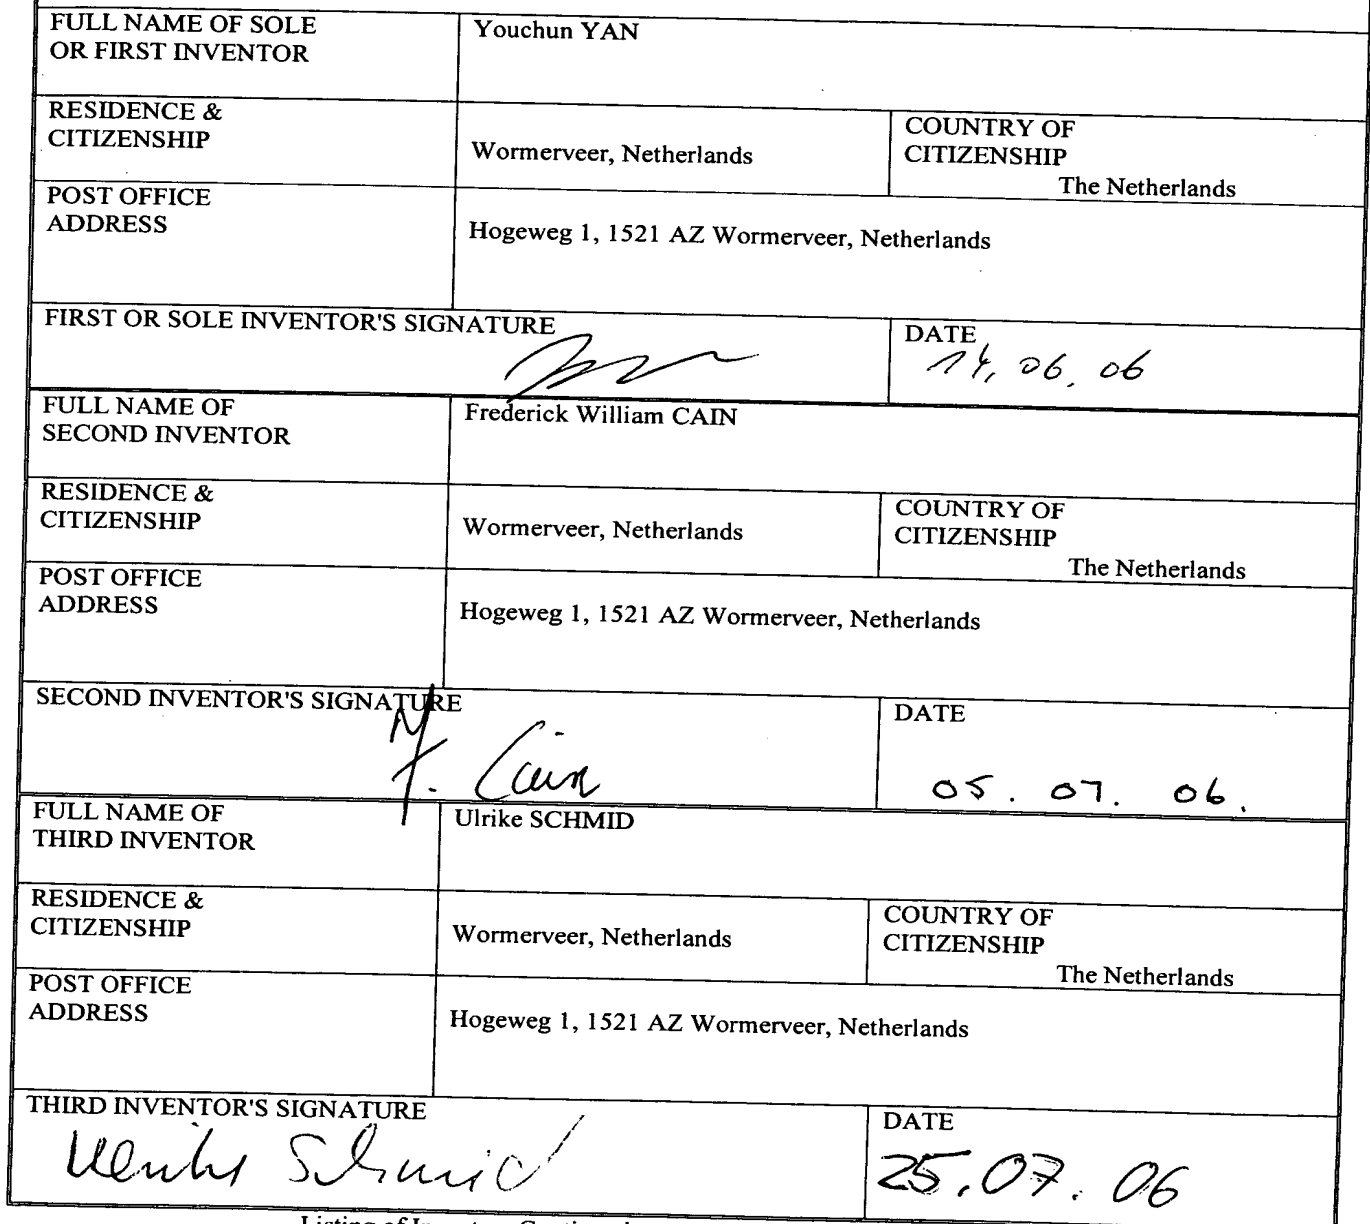 FULL NAME OF SOLE
OR FIRST INVENTOR
Youchun YAN
RESIDENCE &
CITIZENSHIP
Wormerveer, Netherlands
COUNTRY OF
CITIZENSHIP
The Netherlands
POST OFFICE
ADDRESS
Hogeweg 1, 1521 AZ Wormerveer, Netherlands
FIRST OR SOLE INVENTOR'S SIGNATURE
DATE
14, 06. 06
FULL NAME OF
SECOND INVENTOR
Frederick William CAIN
RESIDENCE &
CITIZENSHIP
Wormerveer, Netherlands
COUNTRY OF
CITIZENSHIP
The Netherlands
POST OFFICE
ADDRESS
Hogeweg 1, 1521 AZ Wormerveer, Netherlands
SECOND INVENTOR'S SIGNATURE
F. Cain
DATE
05. 07. 06.
FULL NAME OF
THIRD INVENTOR
Ulrike SCHMID
RESIDENCE &
CITIZENSHIP
Wormerveer, Netherlands
COUNTRY OF
CITIZENSHIP
The Netherlands
POST OFFICE
ADDRESS
Hogeweg 1, 1521 AZ Wormerveer, Netherlands
THIRD INVENTOR'S SIGNATURE
Ulrike Schmid
DATE
25.07.06